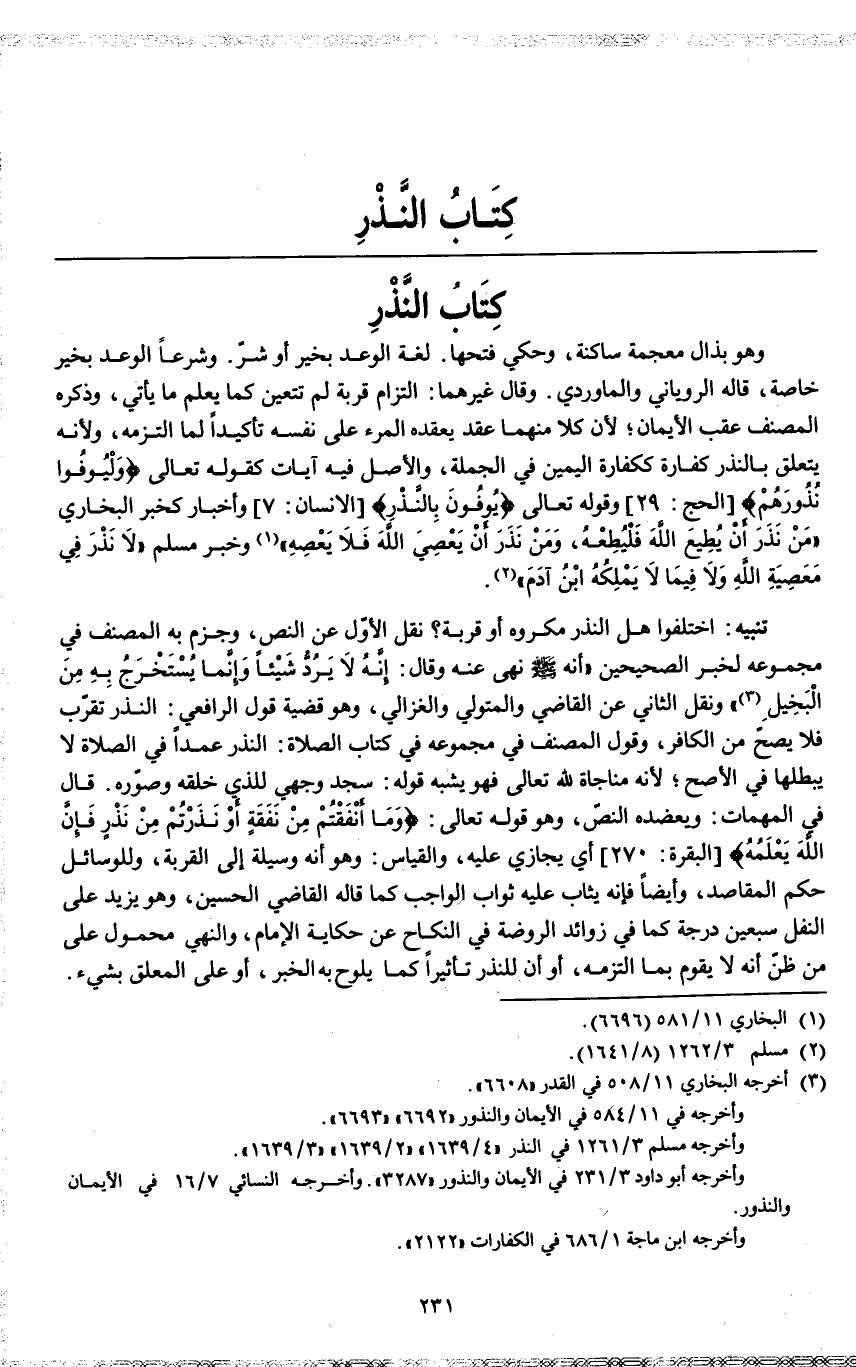 كِتَـابُ النَّـذْرِ
كِتَابُ النَّذْرِ
وهو بذال معجمة ساكنة، وحكي فتحها. لغة الوعد بخير أو شرّ. وشرعاً الوعد بخير
خاصة، قاله الروياني والماوردي. وقال غيرهما: التزام قربة لم تتعين كما يعلم ما يأتي، وذكره
المصنف عقب الأيمان؛ لأن كلا منهما عقد يعقده المرء على نفسه تأكيداً لما التزمه، ولأنه
يتعلق بالنذر كفارة ككفارة اليمين في الجملة، والأصل فيه آيات كقوله تعالى ﴿وَلْيُوفُوا
نُذُورَهُمْ﴾ [الحج: ٢٩] وقوله تعالى ﴿يُوفُونَ بِالنَّذْرِ﴾ [الانسان: ٧] وأخبار كخبر البخاري
«مَنْ نَذَرَ أَنْ يُطِيعَ اللَّهَ فَلْيُطِعْهُ، وَمَنْ نَذَرَ أَنْ يَعْصِيَ اللَّهَ فَلَا يَعْصِهِ»(١) وخبر مسلم «لَا نَذْرَ فِي
مَعَصِيَةِ اللَّهِ وَلَا فِيمَا لَا يَمْلِكُهُ ابْنُ آدَمَ»(٢).
تنبيه: اختلفوا هل النذر مكروه أو قربة؟ نقل الأوّل عن النص، وجزم به المصنف في
مجموعه لخبر الصحيحين «أنه ﷺ نهى عنه وقال: إِنَّهُ لَا يَرُدُّ شَيْئاً وَإِنَّما يُسْتَخْرَجُ بِهِ مِنَ
الْبَخِيلِ(٣)» ونقل الثاني عن القاضي والمتولي والغزالي، وهو قضية قول الرافعي: النذر تقرّب
فلا يصحّ من الكافر، وقول المصنف في مجموعه في كتاب الصلاة: النذر عمداً في الصلاة لا
يبطلها في الأصح؛ لأنه مناجاة لله تعالى فهو يشبه قوله: سجد وجهي للذي خلقه وصوّره. قال
في المهمات: ويعضده النصّ، وهو قوله تعالى: ﴿وَمَا أَنْفَقْتُمْ مِنْ نَفَقَةٍ أَوْ نَذَرْتُمْ مِنْ نَذْرٍ فَإِنَّ
اللَّهَ يَعْلَمُهُ﴾ [البقرة: ٢٧٠] أي يجازي عليه، والقياس: وهو أنه وسيلة إلى القربة، وللوسائل
حكم المقاصد، وأيضاً فإنه يثاب عليه ثواب الواجب كما قاله القاضي الحسين، وهو يزيد على
النفل سبعين درجة كما في زوائد الروضة في النكاح عن حكاية الإمام، والنهي محمول على
من ظنّ أنه لا يقوم بما التزمه، أو أن للنذر تأثيراً كما يلوح به الخبر، أو على المعلق بشيء.
(١) البخاري ٥٨١/١١ (٦٦٩٦).
(٢) مسلم ١٢٦٢/٣ (١٦٤١/٨).
(٣) أخرجه البخاري ٥٠٨/١١ في القدر «٦٦٠٨».
وأخرجه في ٥٨٤/١١ في الأيمان والنذور «٦٦٩٢» «٦٦٩٣».
وأخرجه مسلم ١٢٦١/٣ في النذر «١٦٣٩/٤» «١٦٣٩/٢» «١٦٣٩/٣».
وأخرجه أبو داود ٢٣١/٣ في الأيمان والنذور «٣٢٨٧». وأخرجه النسائي ١٦/٧ في الأيمان
والنذور.
وأخرجه ابن ماجة ٦٨٦/١ في الكفارات «٢١٢٢».
٢٣١